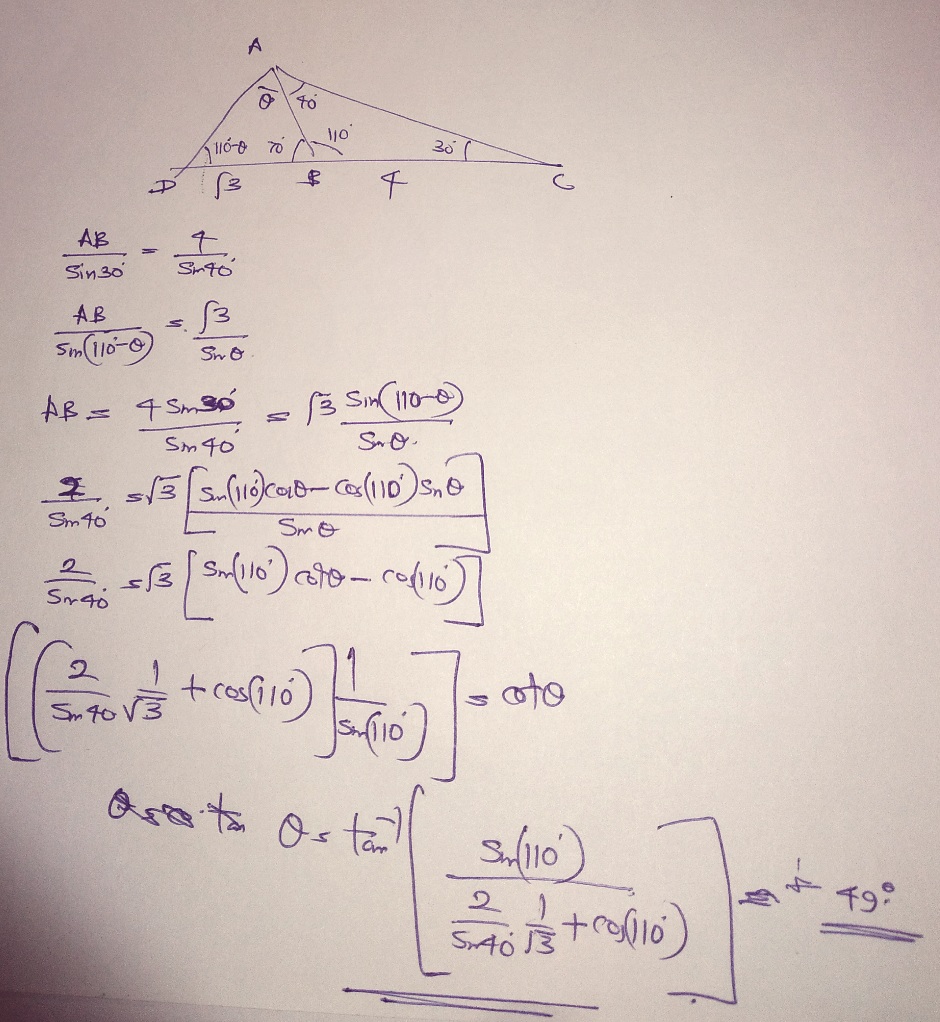 A
θ 40°
110-θ 70° 110° 30°
D √3 B 4 C
AB/Sin30° = 4/Sin40°
AB/Sin(110°-θ) = √3/Sinθ
AB = 4Sin30°/Sin40° = √3 Sin(110-θ)/Sinθ
2/Sin40° = √3 [Sin(110°)cosθ - cos(110°)Sinθ / Sinθ]
2/Sin40° = √3 [Sin(110°)cotθ - cos(110°)]
[[(2/Sin40 1/√3 + cos(110°)] 1/Sin(110°)] = cotθ
θ = tan⁻¹[Sin(110°) / 2/Sin40° 1/√3 + cos(110°)] = 49°